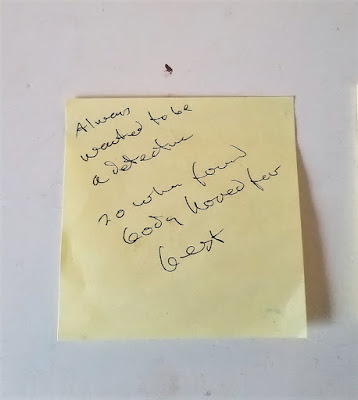 Always
wanted to be
a detective
so when found
body hoped for
best